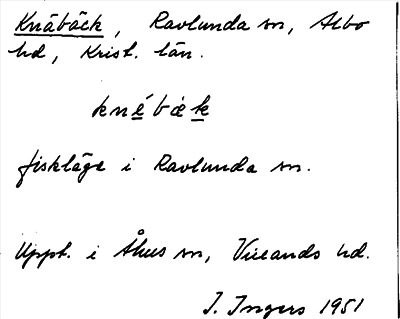 Knäbäck, Ravlunda sn, Albo
hd, Krist. län.
knébàk
fiskläge i Ravlunda sn.
Uppt. i Åhus sn, Villands hd.
I. Ingers 1951